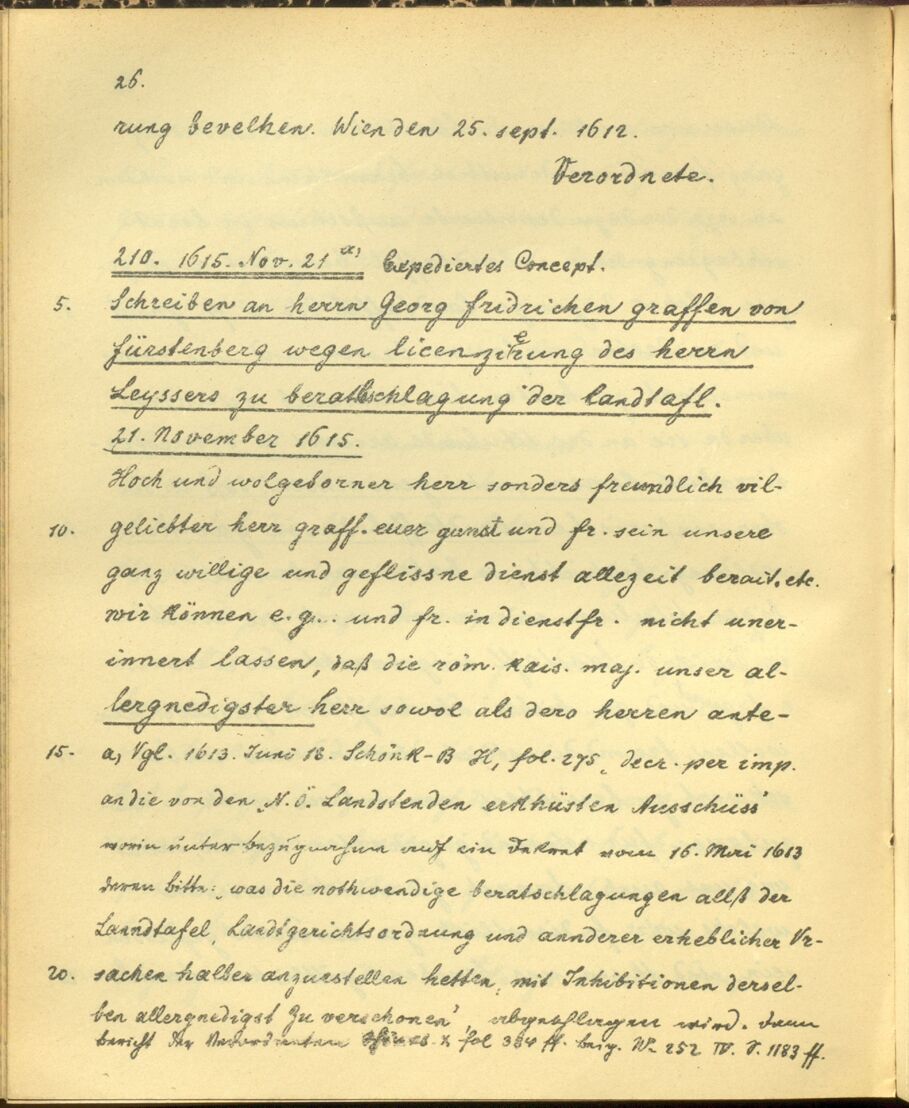 26.
rung bevelhen. Wien den 25. sept. 1612.
Verordnete.
210. 1615. Nov. 21 a) Expediertes Concept.
5. Schreiben an herrn Georg Fridrichen graffen von
Fürstenberg wegen licenzierung des herrn
Leyssers zu berathschlagung der landtafl.
21. November 1615.
Hoch und wolgeborner herr sonders freundlich vil-
10. geliebter herr graff. euer gunst und fr. sein unsere
ganz willige und geflissne dienst allezeit berait. etc.
wir können e. g... und fr. in dienstfr. nicht uner-
innert lassen, daß die röm. kais. maj. unser al-
lergnedigster herr sowol als dero herren ante-
15. a, Vgl. 1613. Juni 18. Schönk-B H, fol. 275 „ decr. per imp.
an die von den „N. Ö. Landstenden erkhüsten Ausschüss'
worin unter bezugnahme auf ein Dekret vom 16. Mai 1613
deren bitte: „was die nothwendige beratschlagungen allß der
Lanndtafel, Landtgerichtsordnung und annderer erheblicher Vr-
20. sachen halber anzustellen hetten, mit Inhibitionen dersel-
ben allergnedigst zu verschonen", abgeschlagen wird. Dann
bericht der Verordneten fol 384 ff. W. 252 IV. S. 1183 ff.